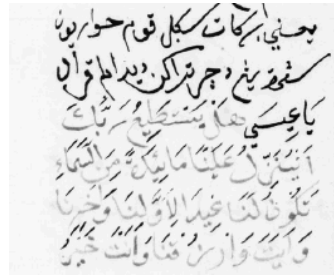 يعني برکات سکل قوم حواريون
سفرت يڠ دچرتراکن ديدالم قرآن
يَا عِيسَي هَلْ يَسْتَطِيعُ رَبُّكَ
اَنْ يُنَزِّلَ عَلَيْنَا مَائِدَةً مِنَ السَّمَاءِ
تَكُونُ لَنَا عِيدًا لِاَوَّلِنَا وَاَخِرِنَا
وَاَيَةً وَارْزُقْنَا وَاَنْتَ خَيْرُ